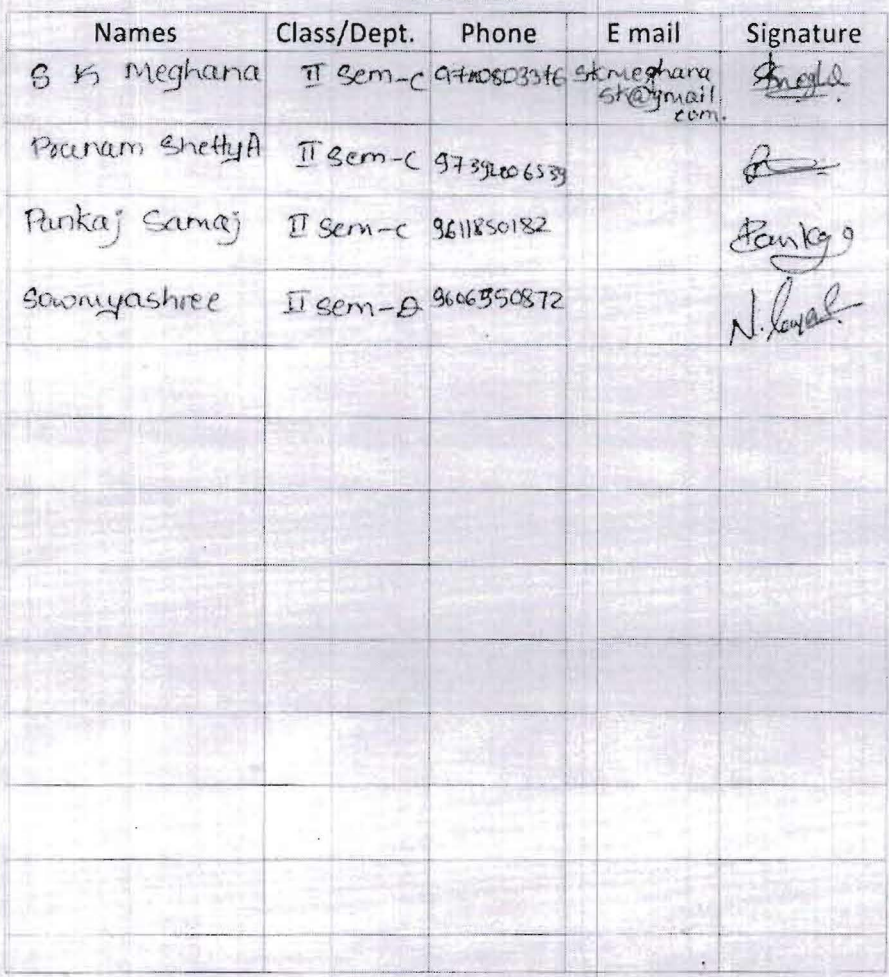 Names Class/Dept. Phone E mail Signature
S K Meghana II Sem-C skmeghana
sk@gmail.
com.
Poonam Shetty A II Sem-C
Pankaj Samaj II Sem-C 9611850182 Pankaj
Sowmyashree II Sem-D 9606550872